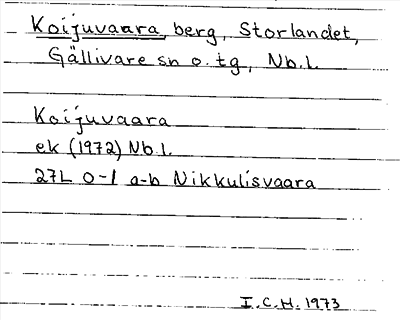 Koijuvaara, berg, Storlandet,
Gällivare sn o. tg, Nb.l.
Koijuvaara
ek (1972) Nb.l.
27L 0-1 a-b Nikkulisvaara
I.C.H. 1973